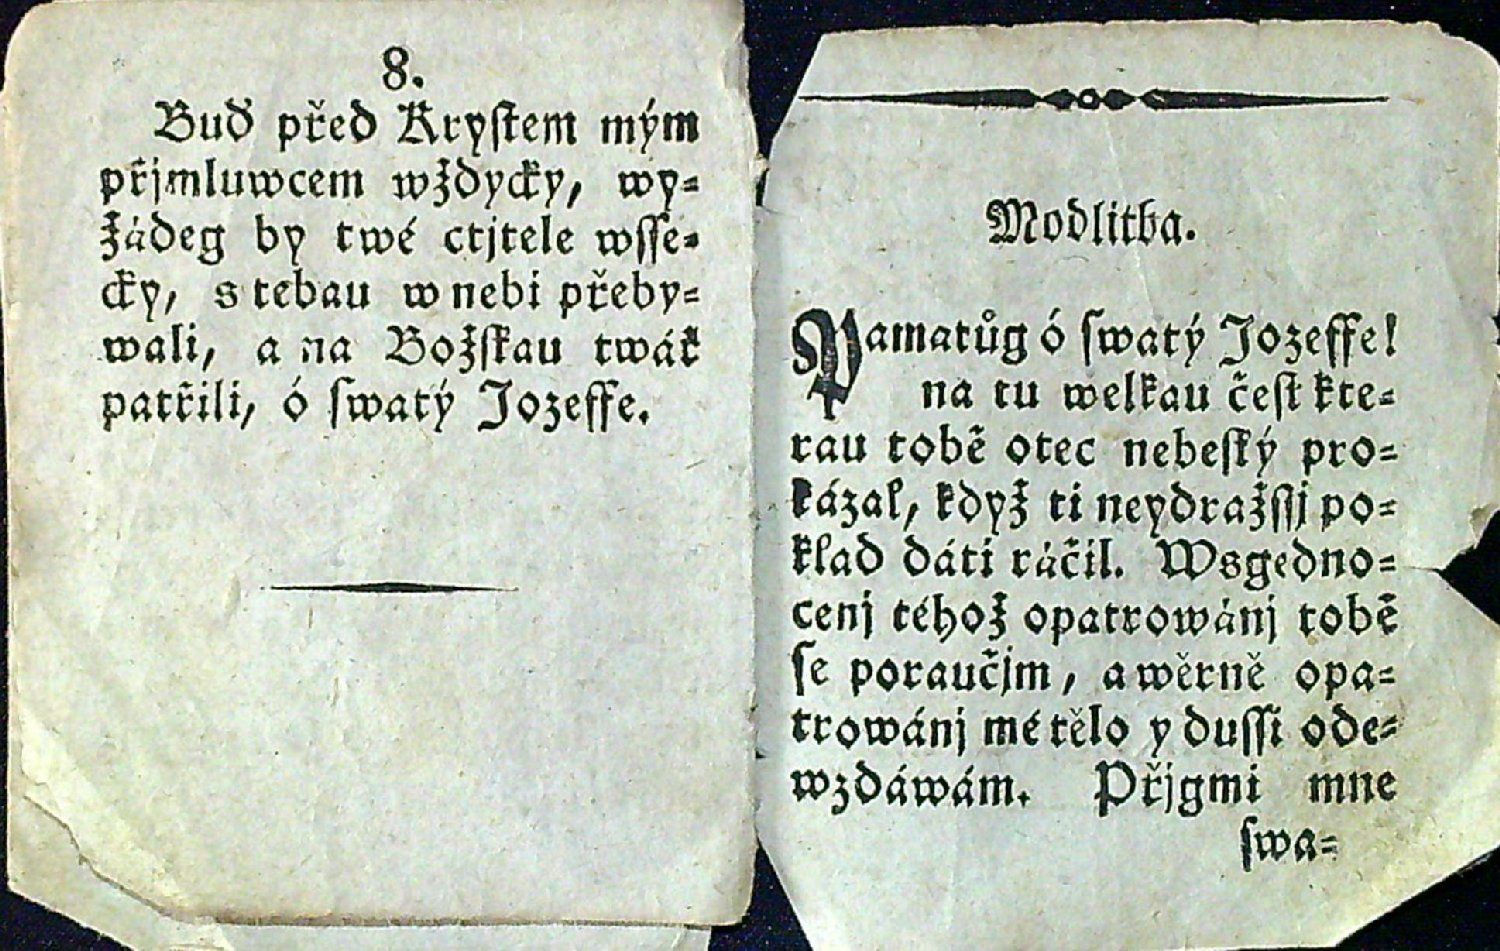 8.
Buď před Krystem mým
přjmluwcem wždycky, wy=
žádeg by twé ctjtele wsse=
cky, s tebau w nebi přeby=
wali, a na Božskau twář
patřili, ó swatý Jozeffe.
Modlitba.
Pamatůg ó swatý Jozeffe!
na tu welkau čest kte=
rau tobě otec nebeský pro=
kázal, když ti neydražssj po=
klad dáti ráčil. W sgedno=
cenj téhož opatrowánj tobě
se poraučjm, a wěrně opa=
trowánj mé tělo y dussi ode=
wzdáwám. Přjgmi mne
swa=